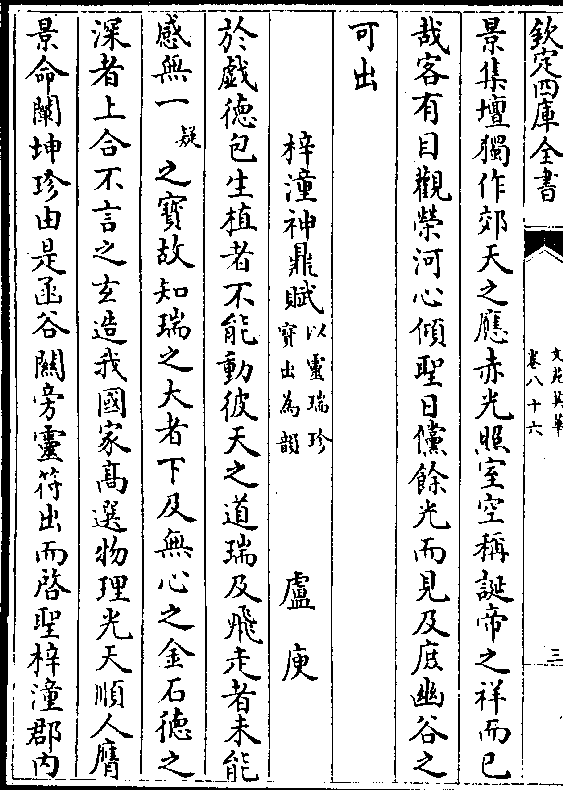 欽定四庫全書
文苑英華
卷八十六
三
景集壇獨作郊天之應赤光照室空稱誕帝之祥而已
哉客有目觀榮河心傾聖日儻餘光而見及庶幽谷之
可出
梓潼神鼎賦以靈瑞珍寶出為韻
盧庾
於戲德包生植者不能動彼天之道瑞及飛走者未能
感無一疑之寶故知瑞之大者下及無心之金石德之
深者上合不言之玄造我國家高選物理光天順人膺
景命闡坤珍由是函谷關旁靈符出而啓聖梓潼郡内